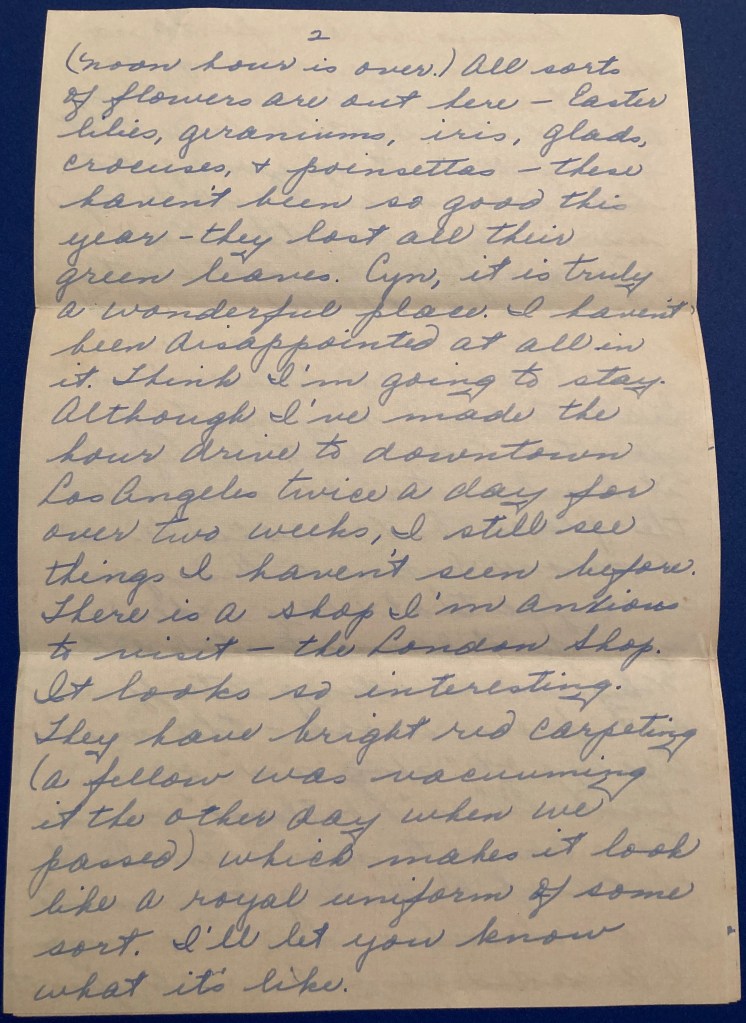 2
(noon hour is over.) All sorts
of flowers are out here - Easter
lilies, geraniums, iris, glads,
crocuses, + poinsettas - these
haven't been so good this
year - they lost all their
green leaves. Cyn, it is truly
a wonderful place. I haven't
been disappointed at all in
it. Think I'm going to stay.
Although I've made the
hour drive to downtown
Los Angeles twice a day for
over two weeks, I still see
things I haven't seen before.
There is a shop I'm anxious
to visit - the London Shop.
It looks so interesting.
They have bright red carpeting
(a fellow was vacuuming
it the other day when we
passed) which makes it look
like a royal uniform of some
sort. I'll let you know
what it's like.